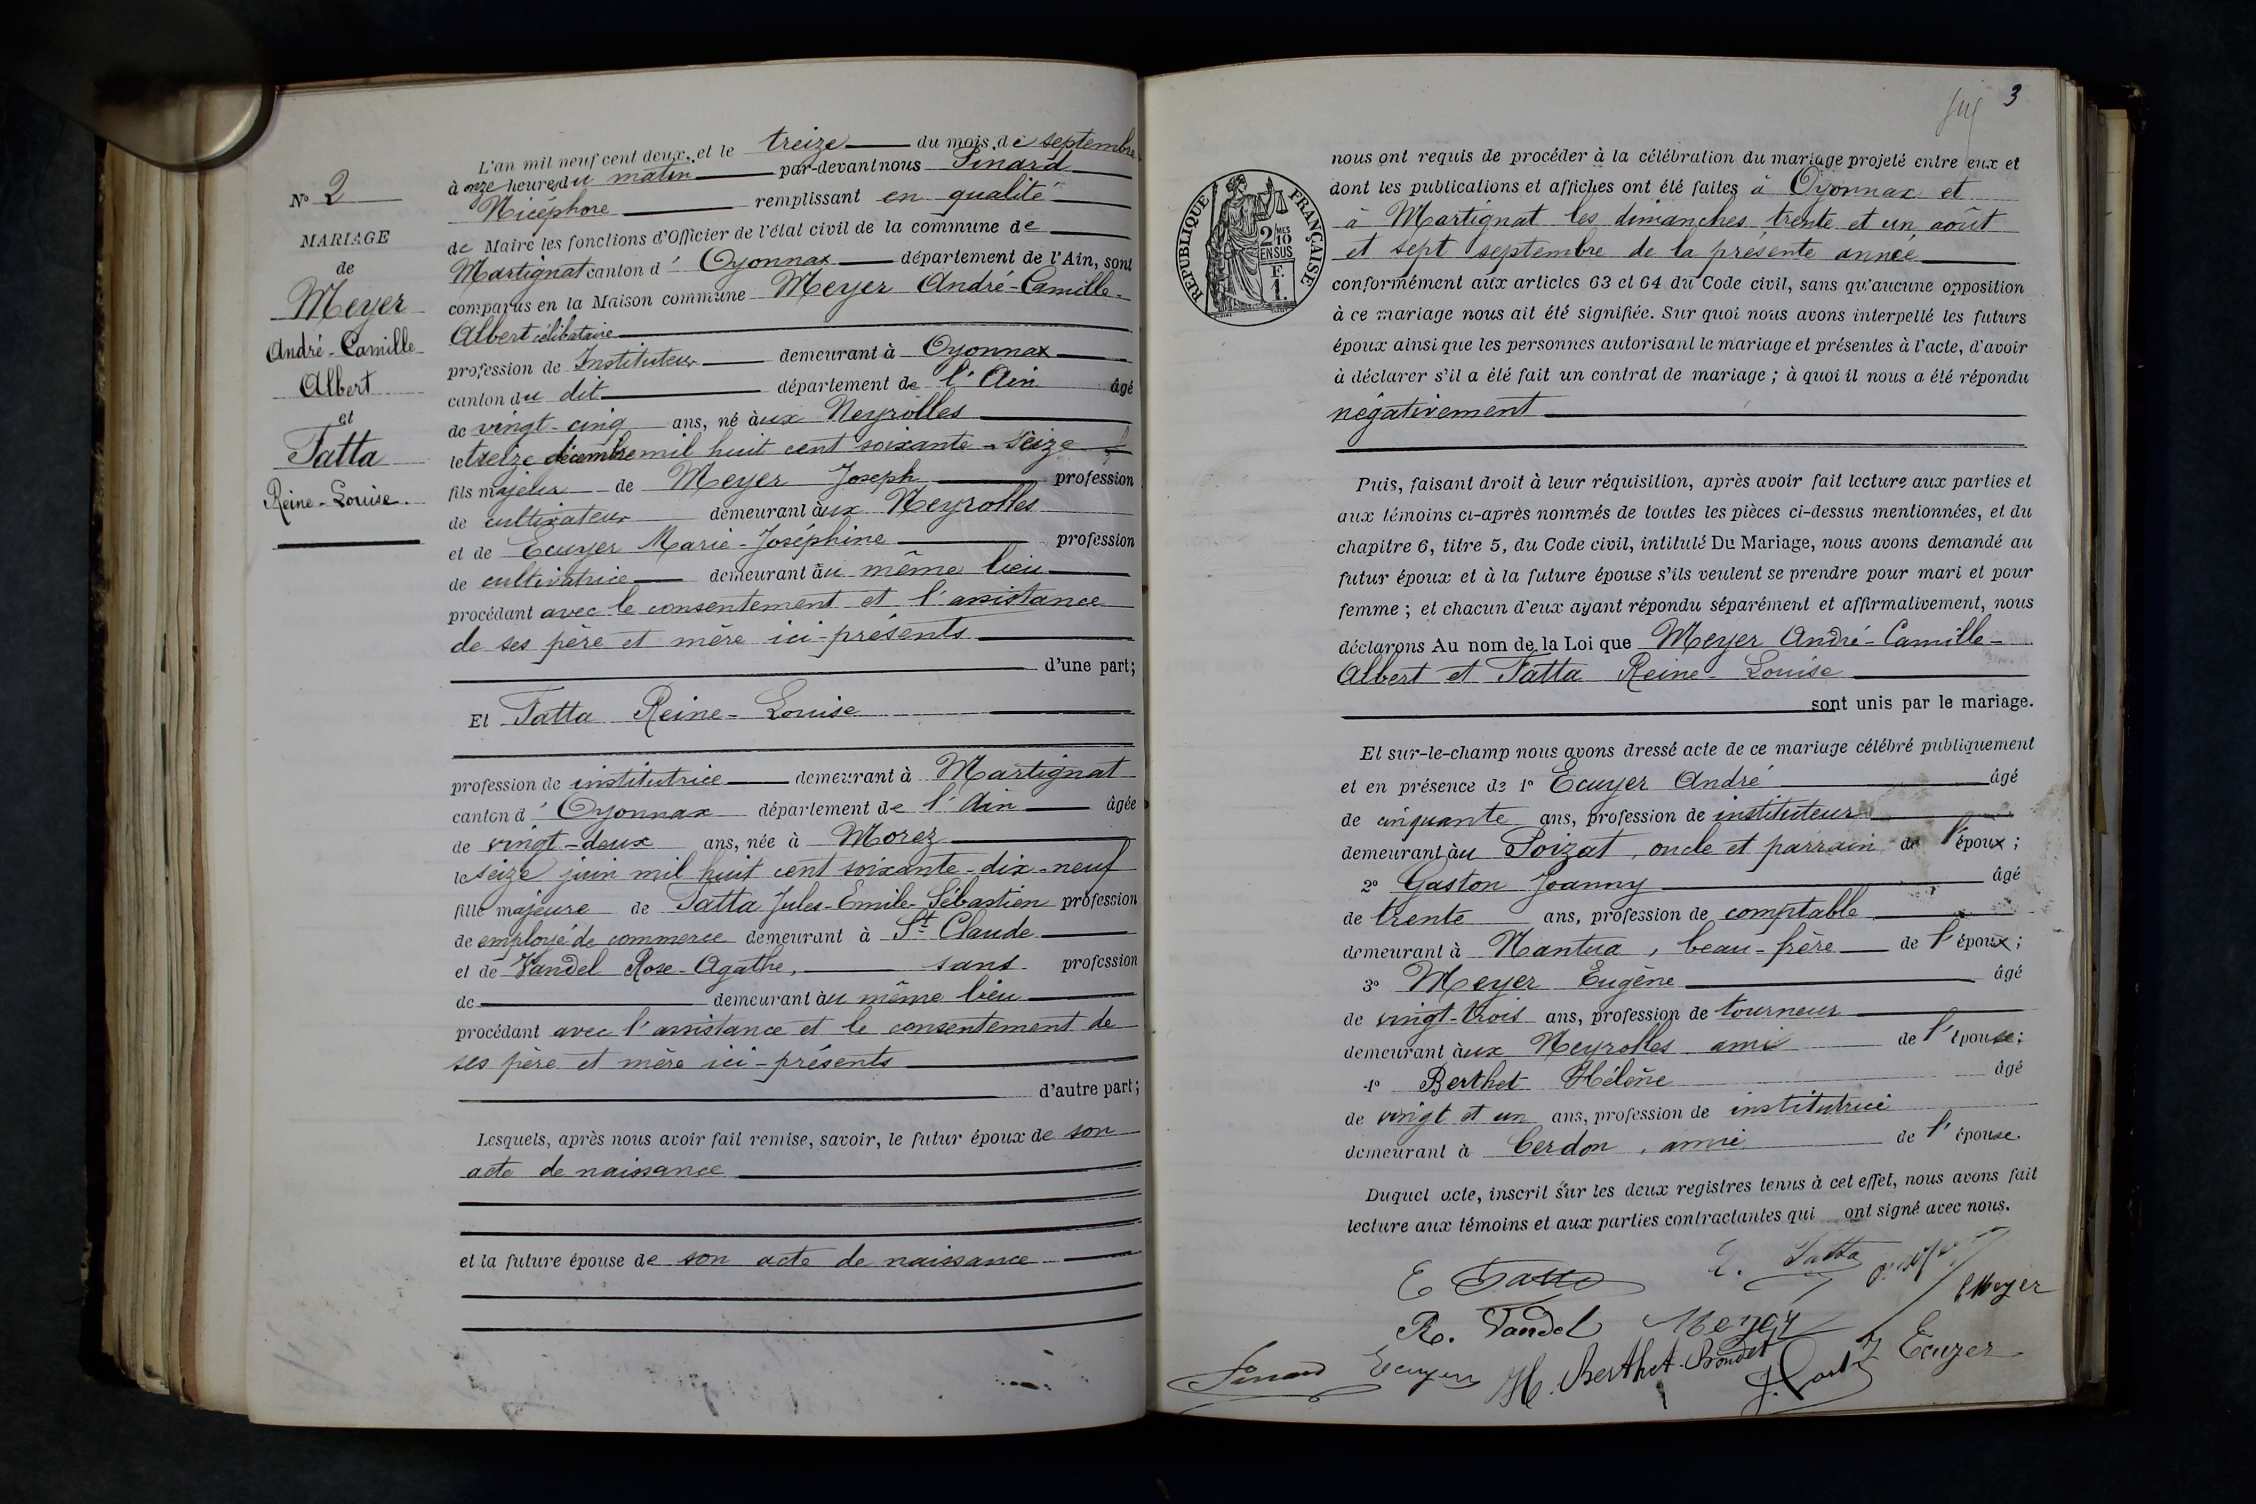 N° 2
MARIAGE
de
Meyer
André-Camille
Albert
et
Tatta
Reine-Louise.
L'an mil neuf cent deux, et le treize du mois de septembre
à onze heures du matin par-devant nous Sinard
Nicéphore remplissant en qualité
de Maire les fonctions d'Officier de l'état civil de la commune de
Martignat canton d' Oyonnax département de l'Ain, sont
comparus en la Maison commune Meyer André-Camille-
Albert célibataire
profession de Instituteur demeurant à Oyonnax
canton du dit département de l'Ain âgé
de vingt-cinq ans, né aux Neyrolles
le treize décembre mil huit cent soixante-seize
fils majeur de Meyer Joseph profession
de cultivateur demeurant aux Neyrolles
et de Ecuyer Marie-Joséphine profession
de cultivatrice demeurant au même lieu
procédant avec le consentement et l'assistance
de ses père et mère ici-présents
d'une part;
Et Tatta Reine-Louise
profession de institutrice demeurant à Martignat
canton d' Oyonnax département de l'Ain âgée
de vingt-deux ans, née à Morez
le seize juin mil huit cent soixante-dix-neuf
fille majeure de Tatta Jules-Emile-Sébastien profession
de employé de commerce demeurant à St Claude
et de Vandel Rose-Agathe, sans profession
de demeurant au même lieu
procédant avec l'assistance et le consentement de
ses père et mère ici-présents
d'autre part;
Lesquels, après nous avoir fait remise, savoir, le futur époux de son
acte de naissance
et la future épouse de son acte de naissance
3
nous ont requis de procéder à la célébration du mariage projeté entre eux et
dont les publications et affiches ont été faites à Oyonnax et
à Martignat les dimanches trente et un août
et sept septembre de la présente année
RÉPUBLIQUE FRANÇAISE
2/10 MES
EN SUS
F.
1.
conformément aux articles 63 et 64 du Code civil, sans qu'aucune opposition
à ce mariage nous ait été signifiée. Sur quoi nous avons interpellé les futurs
époux ainsi que les personnes autorisant le mariage et présentes à l'acte, d'avoir
à déclarer s'il a été fait un contrat de mariage ; à quoi il nous a été répondu
négativement
Puis, faisant droit à leur réquisition, après avoir fait lecture aux parties et
aux témoins ci-après nommés de toutes les pièces ci-dessus mentionnées, et du
chapitre 6, titre 5, du Code civil, intitulé Du Mariage, nous avons demandé au
futur époux et à la future épouse s'ils veulent se prendre pour mari et pour
femme ; et chacun d'eux ayant répondu séparément et affirmativement, nous
déclarons Au nom de la Loi que Meyer André-Camille-
Albert et Tatta Reine-Louise
sont unis par le mariage.
Et sur-le-champ nous avons dressé acte de ce mariage célébré publiquement
et en présence de 1° Ecuyer André âgé
de cinquante ans, profession de instituteur
demeurant au Poizat, oncle et parrain de l'époux ;
2° Gaston Joanny âgé
de trente ans, profession de comptable
demeurant à Nantua, beau-frère de l'époux ;
3° Meyer Eugène âgé
de vingt-trois ans, profession de tourneur
demeurant aux Neyrolles ami de l'épouse ;
4° Berthet Hélène âgé
de vingt et un ans, profession de institutrice
demeurant à Cerdon, amie de l'épouse.
Duquel acte, inscrit sur les deux registres tenus à cet effet, nous avons fait
lecture aux témoins et aux parties contractantes qui ont signé avec nous.
E Tatta
Tatta
E Meyer
R. Vandel
Meyer
Ecuyer
Sinard
Ecuyer
H. Berthet-Brondet